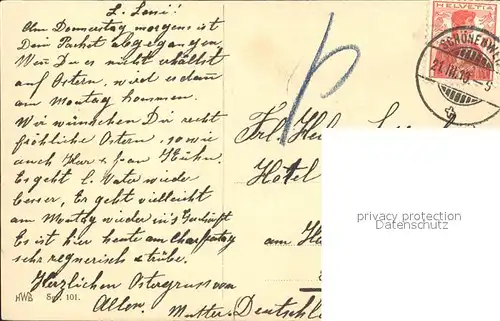 L. Loni!!
Am Donnerstag morgens ist
Dein Packet abgegangen,
Wen Du es nicht erhälst
auf Ostern, wird es dann
am Montag kommen.
Wir wünschen Dir recht
fröhliche Ostern, sowie
auch Her & Frau Hühn.
Es geht l. Vater wieder
besser, Es geht vielleicht
am Montag wieder in's Geschäft
Es ist hier heute am Charfreitag
sehr regnerisch & trübe.
Herzlichen Ostergruss von
Allen.
Mutter.
HWB Ser. 101.
HELVETIA
SCHÖNENW
21.III.10.
Frl. He
Hôtel
am
Deutschl
privacy protection
Datenschutz